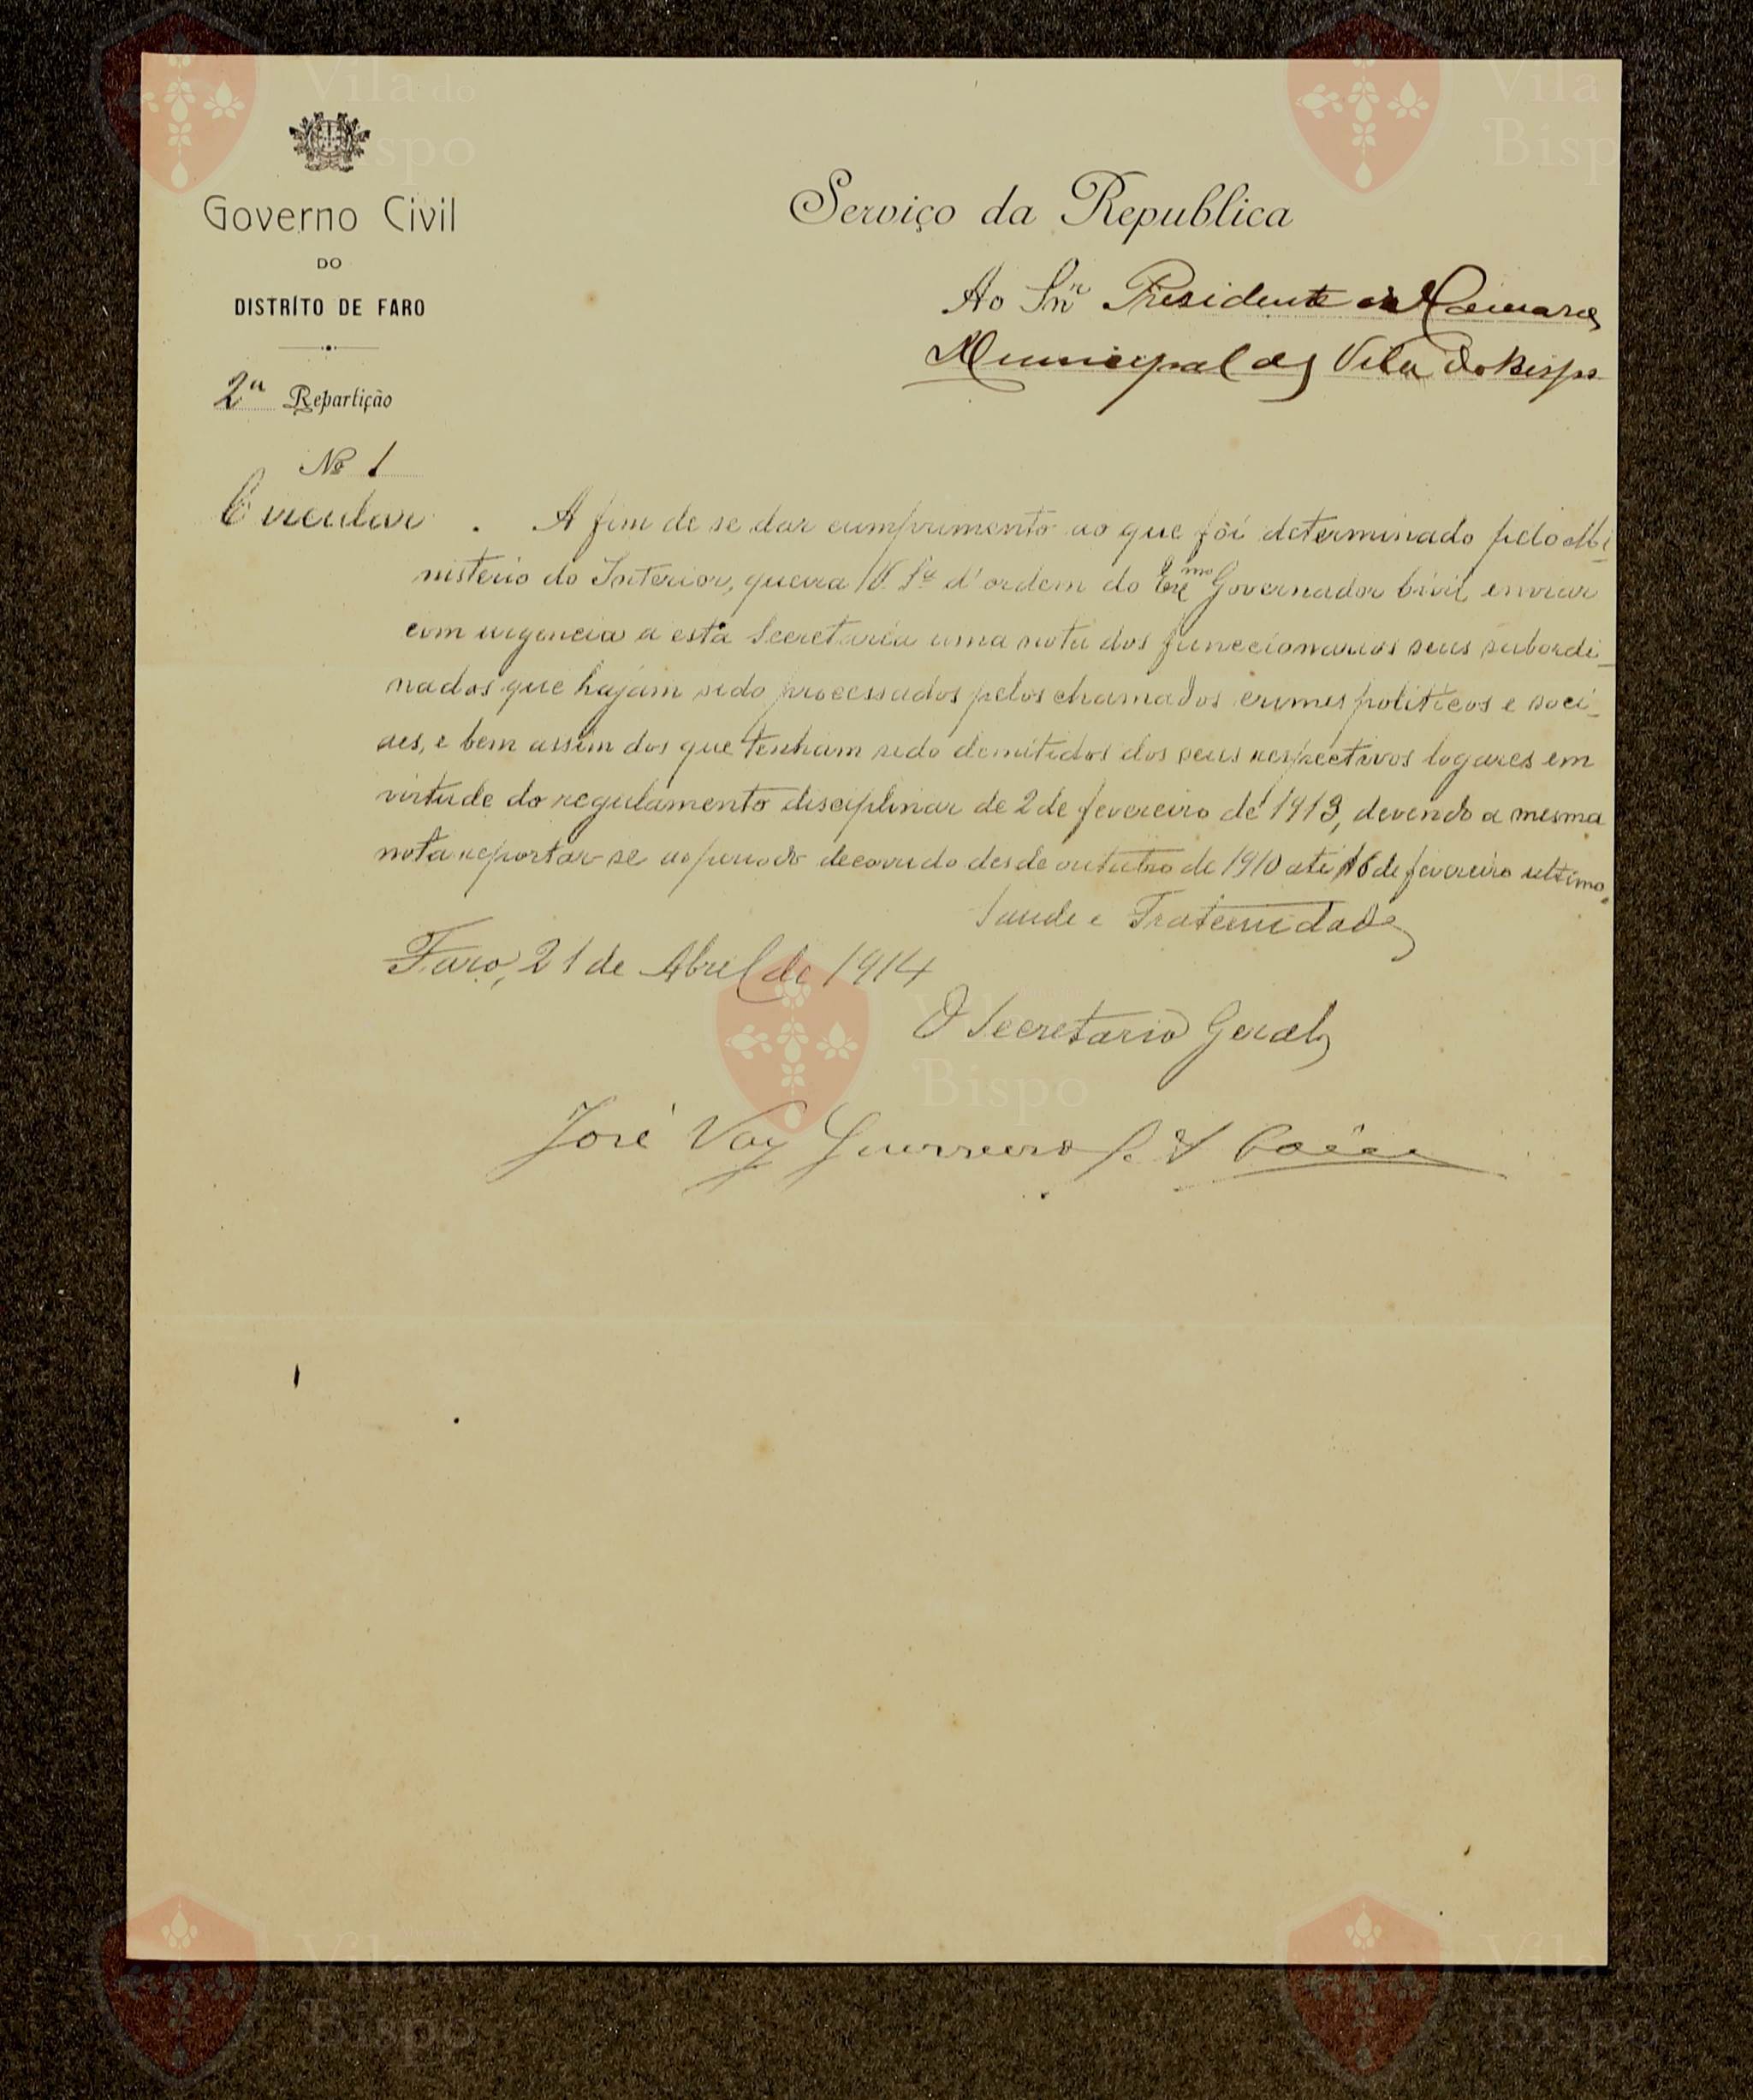 Governo Civil
DO
DISTRÍTO DE FARO
2ª Repartição
Nº 1
Circular.
Serviço da Republica
Ao Snr Presidente da Camara
Municipal de Vila do Bispo
A fim de se dar cumprimento ao que foi determinado pelo Mi-
nisterio do Interior, queira V. Sª d'ordem do Exmo Governador Civil, enviar
com urgencia a esta Secretaria uma nota dos funccionarios seus subordi-
nados que hajam sido processados pelos chamados crimes politicos e soci-
aes, e bem assim dos que tenham sido demitidos dos seus respectivos logares em
virtude do regulamento disciplinar de 2 de fevereiro de 1913, devendo a mesma
nota reportar-se ao periodo decorrido desde outubro de 1910 até 16 de fevereiro ultimo.
Saude e Fraternidade
Faro, 21 de Abril de 1914
O Secretario Geral,
José Vaz Guerreiro
Vila do
Bispo
Vila
Bispo
Bispo
Vila do
Bispo
Vila
Bispo